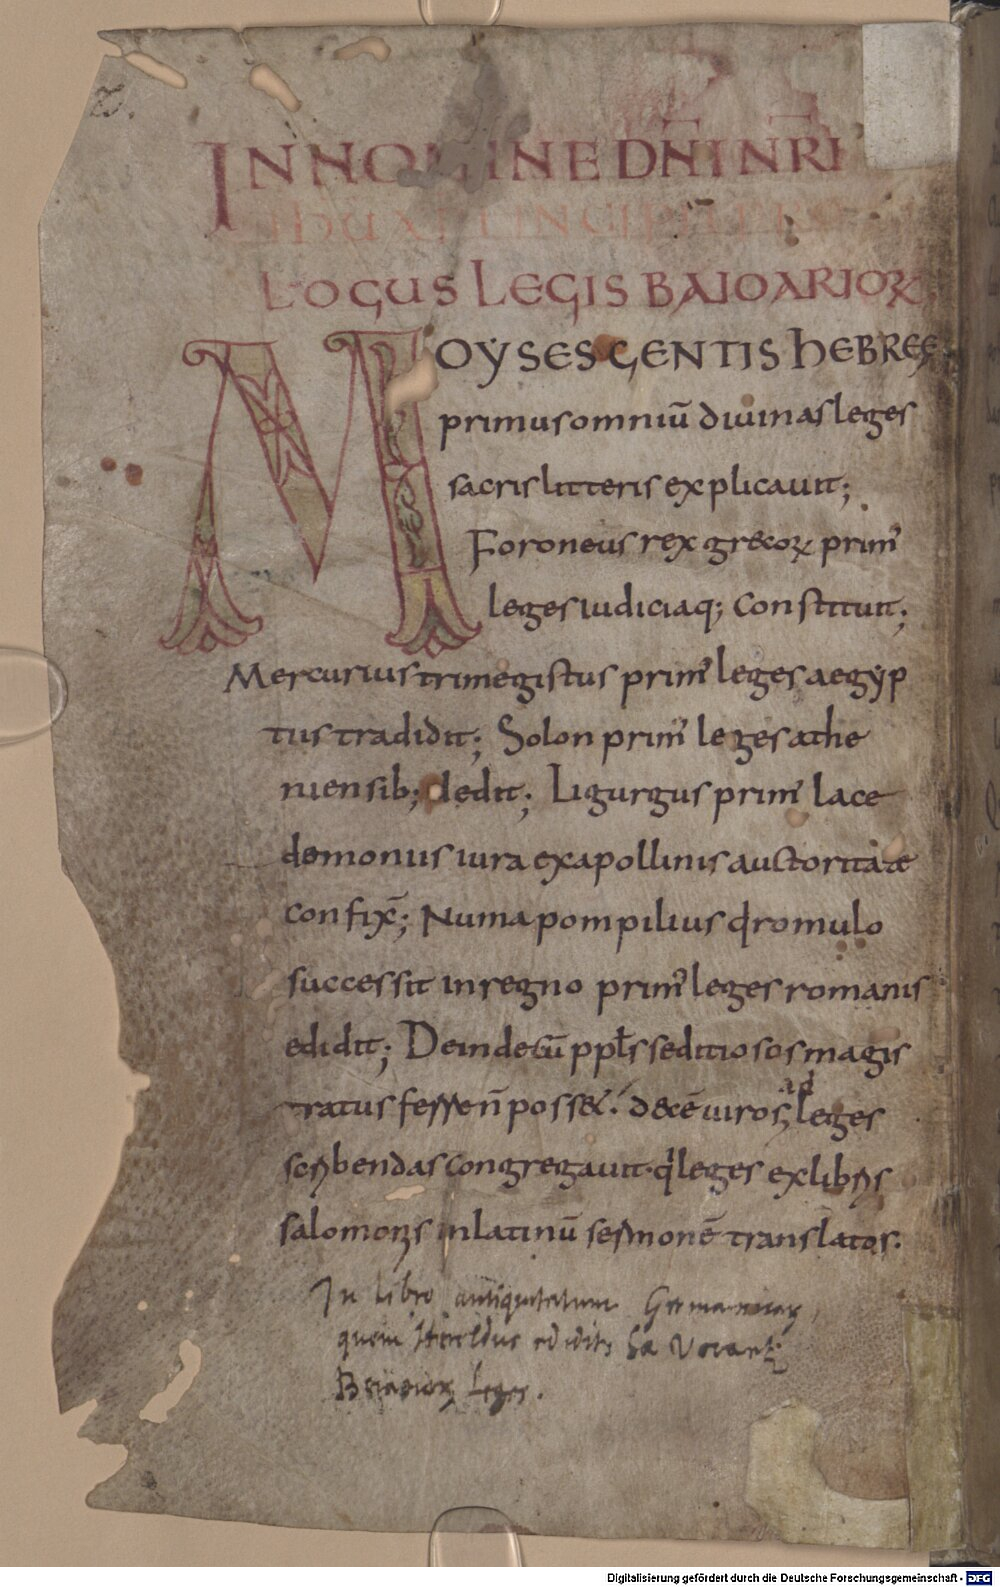 INNOMINE DN̄I NR̄I
IHŪ XPI INCIPIT PRO
LOGUS LEGIS BAIOARIOꝜ
MOYSES GENTIS hEBREę
primus omniū diuinas leges
sacris litteris explicauit;
Foroneus rex grecoꝝ prim᾽
leges iudiciaq; constituit;
Mercurius trimegistus prim᾽ leges aegyp
tiis tradidit; Solon prim᾽ leges athe
niensib; dedit; Ligurgus prim᾽ lace
demoniis iura ex apollinis auctoritate
confix̄; Numa pompilius q̇ romulo
successit in regno prim᾽ leges romanis
edidit; Deinde cū pp̄ls seditiosos magis
tratus ferre n̄ poss&; decē uiros ad leges
scribendas congregauit q̇ leges ex libris
salomonis in latinū sermonē translatos.
In libro antiquitatum Germanicaꝝ,
quem Heroldus edidit, hæ vocant᾽
Baioarioꝝ Leges.
Digitalisierung gefördert durch die Deutsche Forschungsgemeinschaft - DFG